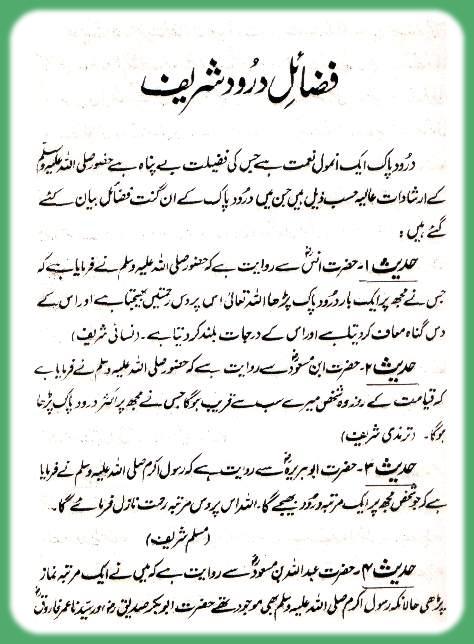 فضائلِ درُود شریف
درُود پاک ایک انمول نعمت ہے جس کی فضیلت بے پناہ ہے حضور صلی اللہ علیہ وسلم
کے ارشادات عالیہ حسب ذیل ہیں جن میں درُود پاک کے ان گنت فضائل بیان کئے
گئے ہیں :
حدیث ۱ - حضرت انسؓ سے روایت ہے کہ حضور صلی اللہ علیہ وسلم نے فرمایا ہے کہ
جس نے مجھ پر ایک بار درُود پاک پڑھا اللہ تعالیٰ اس پر دس رحمتیں بھیجتا ہے اور اس کے
دس گناہ معاف کر دیتا ہے اور اس کے درجات بلند کر دیتا ہے ۔ (نسائی شریف)
حدیث ۲ - حضرت ابن مسعودؓ سے روایت ہے کہ حضور صلی اللہ علیہ وسلم نے فرمایا ہے
کہ قیامت کے روز وہ شخص میرے سب سے قریب ہوگا جس نے مجھ پر اکثر درود پاک پڑھا
ہوگا ۔ (ترمذی شریف)
حدیث ۳ - حضرت ابوہریرہؓ سے روایت ہے کہ رسول اکرم صلی اللہ علیہ وسلم نے فرمایا
ہے کہ جو شخص مجھ پر ایک مرتبہ درُود بھیجے گا ۔ اللہ اس پر دس مرتبہ رحمت نازل فرمائے گا ۔
(مسلم شریف)
حدیث ۴ - حضرت عبداللہ بن مسعودؓ سے روایت ہے کہ میں نے ایک مرتبہ نماز
پڑھی حالانکہ رسول اکرم صلی اللہ علیہ وسلم بھی موجود تھے حضرت ابوبکر صدیقؓ اور سیدنا عمر فاروقؓ